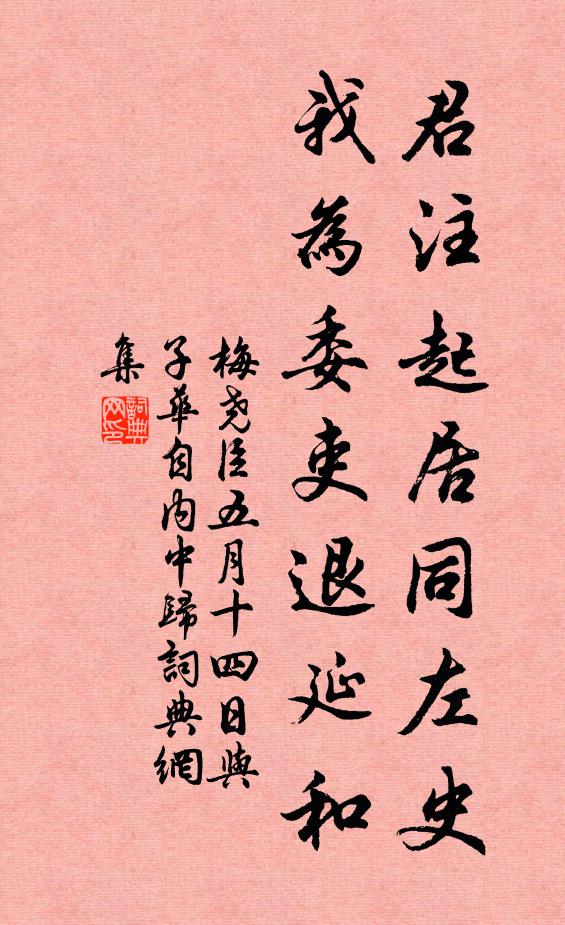 君注起居同左史
我為委吏退延和
梅尧臣五月十四日與
子華自内中歸詞典網
集
詞典
网印